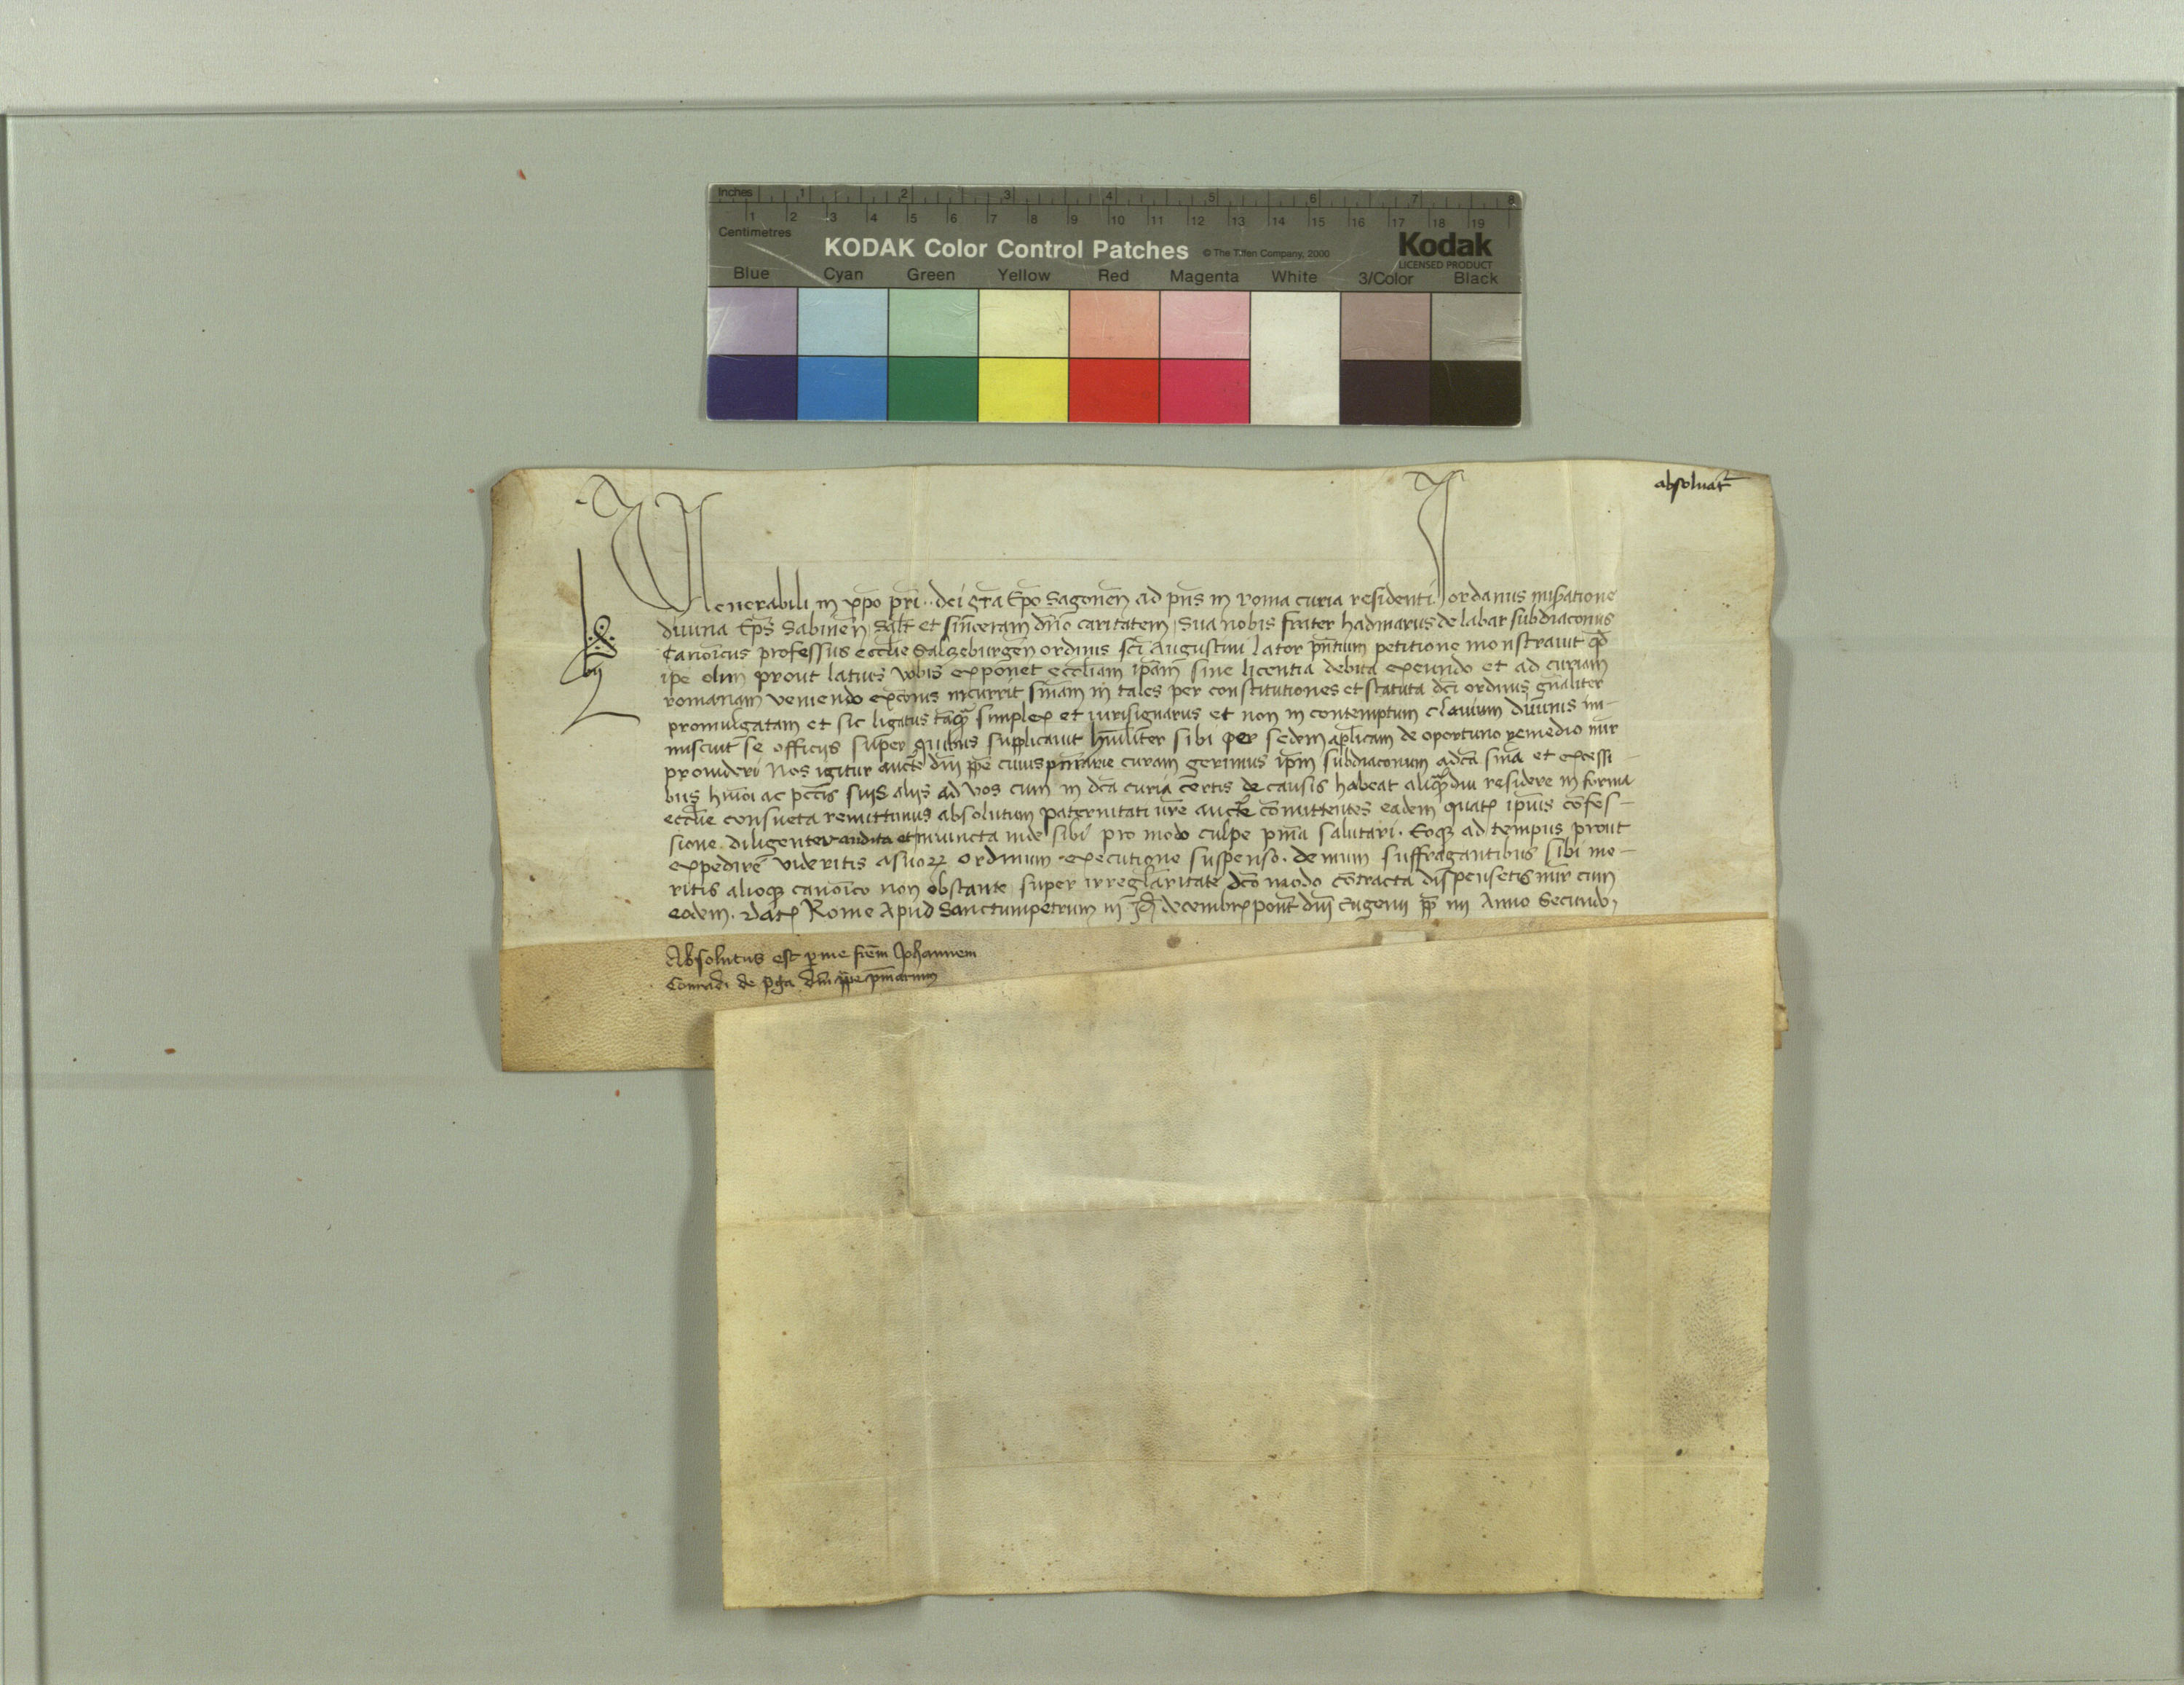 Inches 1 2 3 4 5 6 7 8
1 2 3 4 5 6 7 8 9 10 11 12 13 14 15 16 17 18 19
Centimetres
KODAK Color Control Patches © The Tiffen Company, 2000 Kodak
LICENSED PRODUCT
Blue Cyan Green Yellow Red Magenta White 3/Color Black
absoluat̄
Venerabili in xp̄o pr̄i .. dei gr̄a Ep̄o Sagonen̄ ad pn̄s in roma curia residenti Jordanus mis̄atione
diuina Ep̄s Sabinen̄ Salt̄ et sinceram dn̄o caritatem Sua nobis frater hadmarus de labar subdiaconus
Canoīcus professus eccl̄ie Salzeburgen̄ ordinis sc̄i Augustini lator pn̄tium petitione monstrauit qd̄
ip̄e olim prout latius vobis exponet eccl̄iam ip̄am sine licentia debita exeundo et ad curiam
romanam veniendo excōis incurrit sn̄iam in tales per constitutiones et statuta dc̄i ordinis gn̄aliter
promulgatam et sic ligatus tāqȝ simplex et iurisignarus et non in contemptum clauium diuinis im-
miscuit se officijs super quibus supplicauit hūilīter sibi per sedem ap̄licam de oportuno remedio mīr
prouideri Nos igitur auctē dn̄i pp̄e cuius pn̄iarie curam gerimus ip̄m subdiaconum adc̄a sn̄ia et excessi-
bus hm̄oi ac pc̄cis suis alijs ad vos cum in dc̄a curia certis de causis habeat aliqȝdiu residere in forma
eccl̄ie consueta remittimus absolutum paternitati vr̄e auctē cōmittentes eadem quatꝭ ip̄ius cōfes-
sione diligenter audita et iniuncta inde sibi pro modo culpe pn̄ia salutari . Eoqȝ ad tempus prout
expedire videritis a suoꝝ ordinum executione suspenso . demum suffragantibus sibi me-
ritis alioqȝ canoīco non obstante super irregl̄aritate dc̄o modo cōtracta dispensetis mīr cum
eodem . Datꝭ Rome Apud Sanctumpetrum iij Id̄ decembrꝭ pont̄ dn̄i Eugenij pp̄ iiij Anno Secundo,
Absolutus est per me fr̄em Johannem
Conradi de pḡa dn̄i pp̄e pn̄iarium